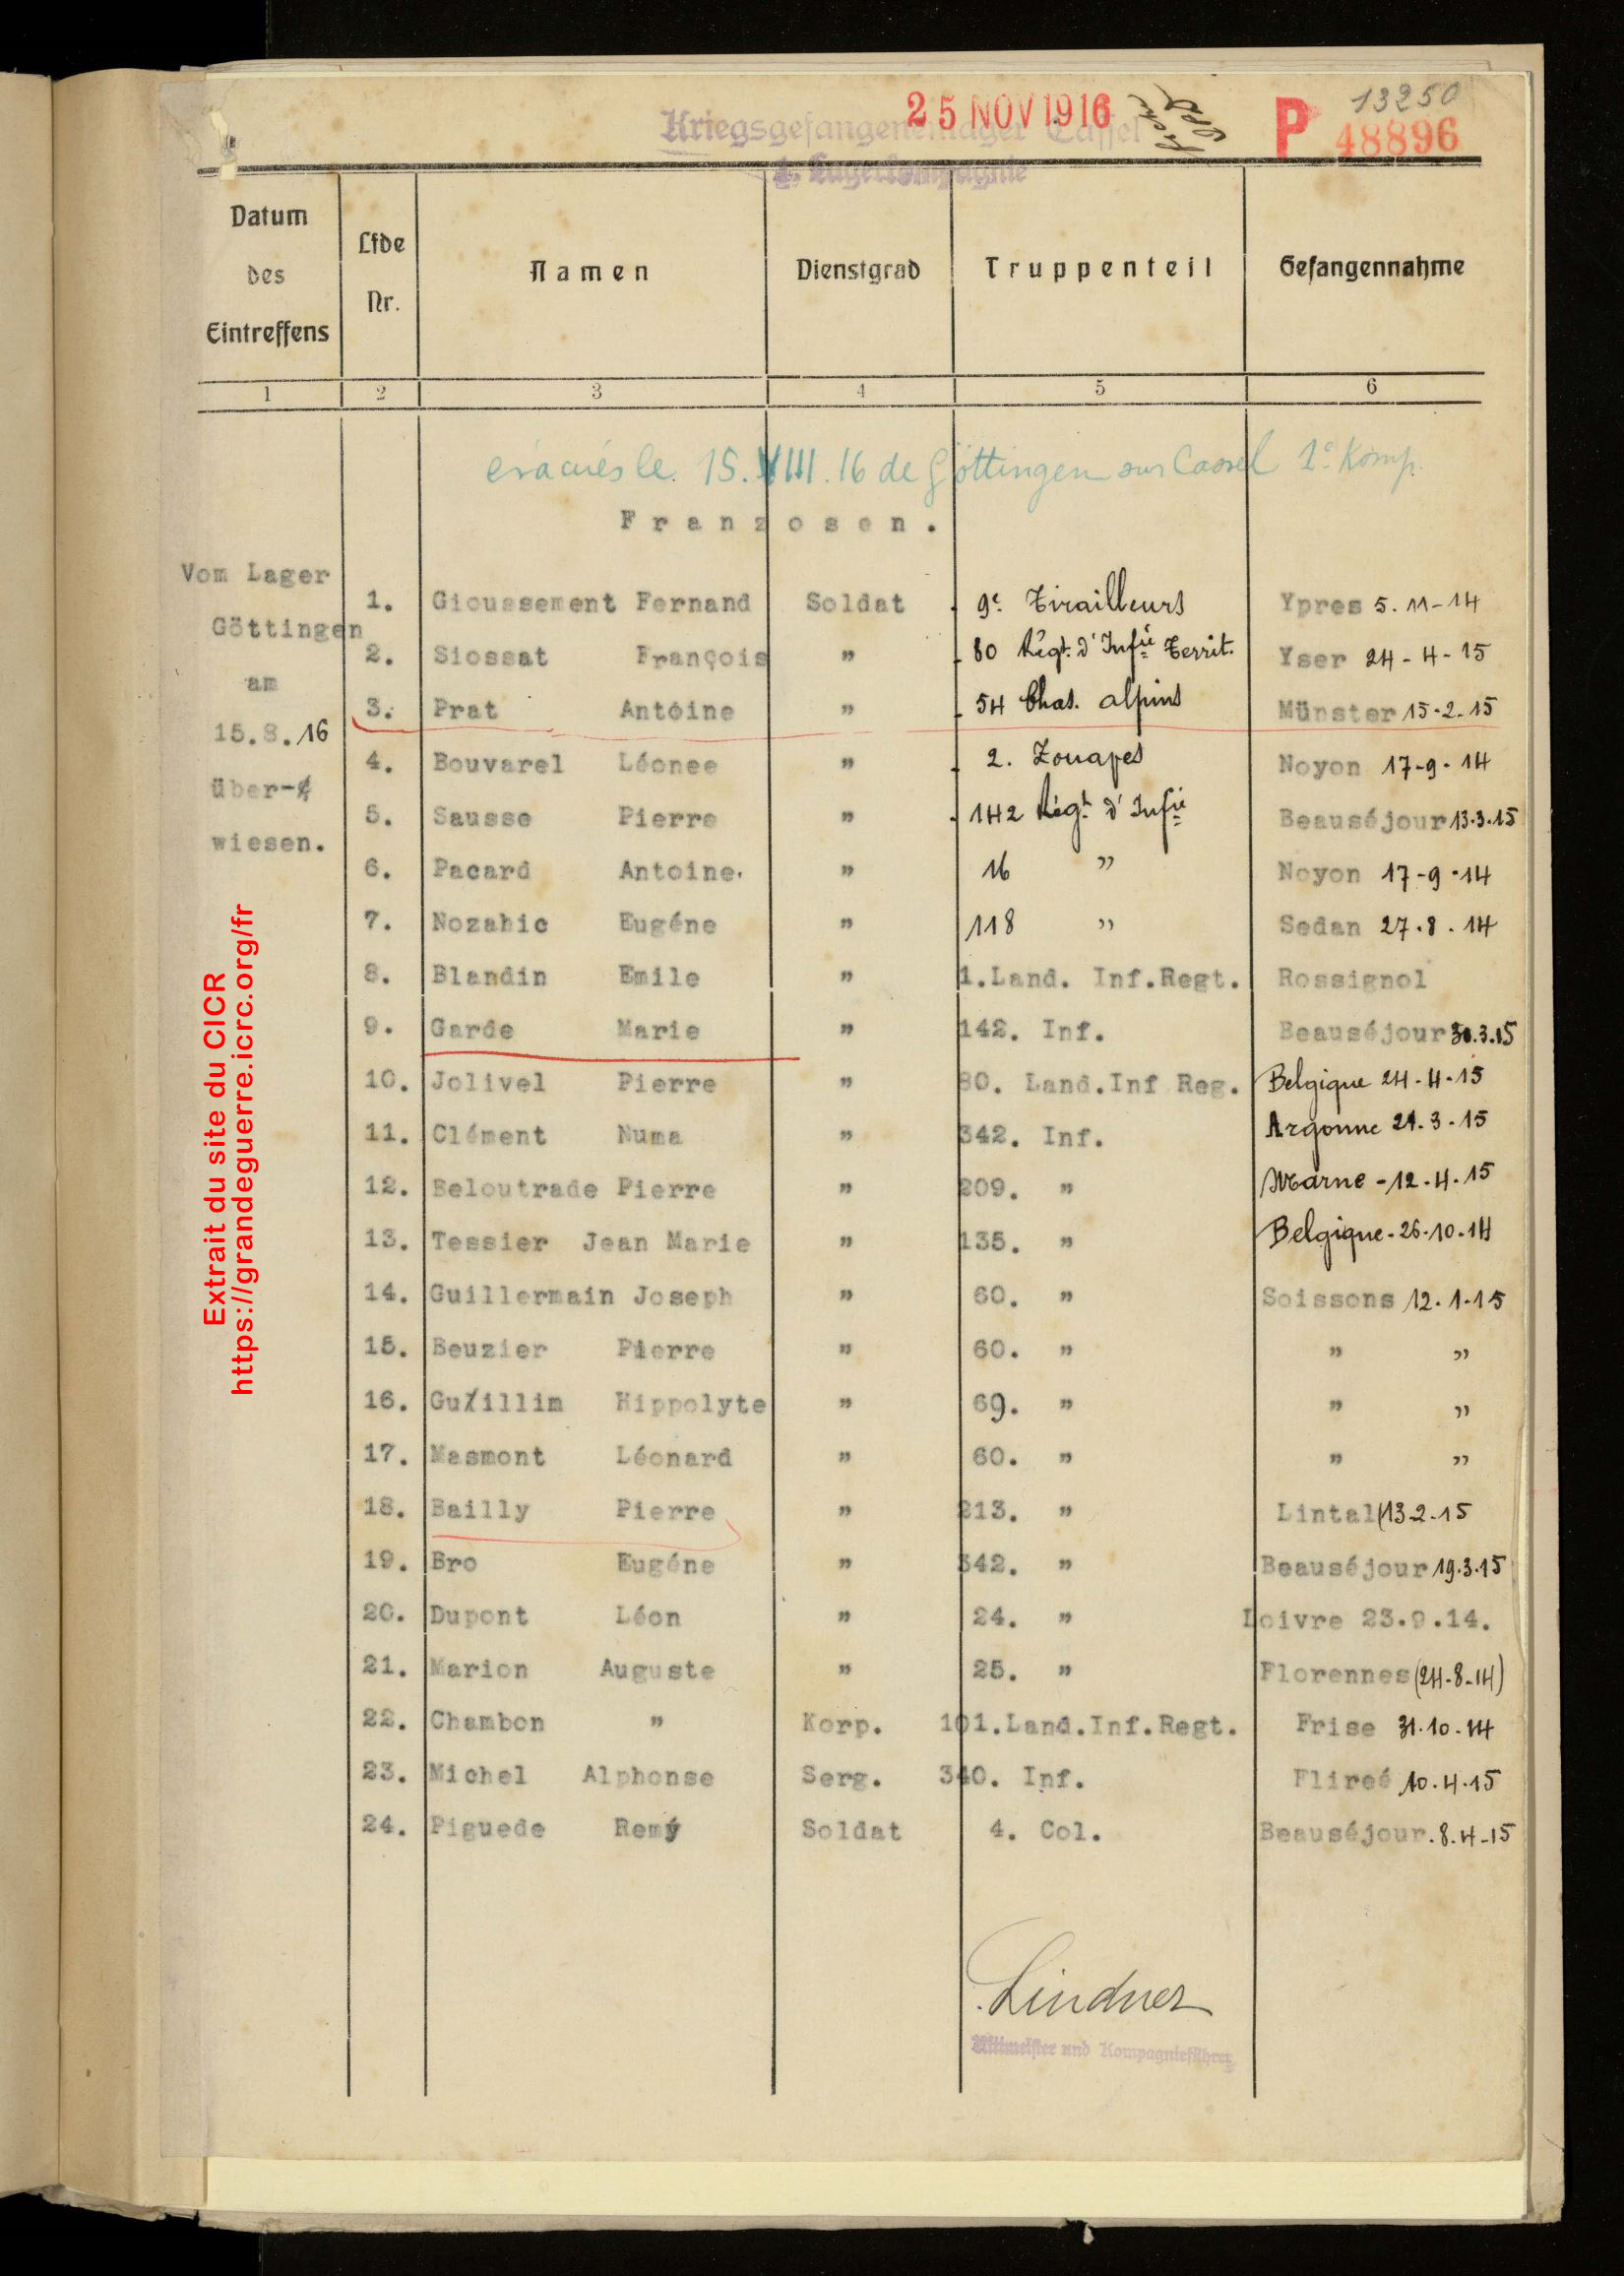 25 NOV 1916
13250
Kriegsgefangenenlager Cassel
P 48896
1. Lagerkompagnie
Datum des Eintreffens
Lfde Nr.
Namen
Dienstgrad
Truppenteil
Gefangennahme
1 2 3 4 5 6
évacués le 15.VIII.16 de Göttingen sur Cassel 1e Komp.
Franzosen.
Vom Lager
Göttingen
am
15.8.16
über-
wiesen.
1. Gioussement Fernand Soldat 9e Tirailleurs Ypres 5.11-14
2. Siossat François " 80 Régt. d'Infie Territ. Yser 24-4-15
3. Prat Antoine " 54 Chas. alpins Münster 15-2-15
4. Bouvarel Léonee " 2. Zouaves Noyon 17-9-14
5. Sausse Pierre " 142 Régt d'Infie Beauséjour 13.3.15
6. Pacard Antoine. " 16 " Noyon 17-9-14
7. Nozahic Eugéne " 118 " Sedan 27.8.14
8. Blandin Emile " 1.Land. Inf.Regt. Rossignol
9. Garde Marie " 142. Inf. Beauséjour 30.3.15
10. Jolivel Pierre " 80. Land.Inf Reg. Belgique 24-4-15
11. Clément Numa " 342. Inf. Argonne 21.3-15
12. Beloutrade Pierre " 209. " Marne -12.4.15
13. Tessier Jean Marie " 135. " Belgique-26.10.14
14. Guillermain Joseph " 60. " Soissons 12.1.15
15. Beuzier Pierre " 60. " " "
16. Guillim Hippolyte " 69. " " "
17. Masmont Léonard " 60. " " "
18. Bailly Pierre " 213. " Lintal(13-2-15
19. Bro Eugéne " 342. " Beauséjour 19.3.15
20. Dupont Léon " 24. " Loivre 23.9.14.
21. Marion Auguste " 25. " Florennes(24-8-14)
22. Chambon " Korp. 101.Land.Inf.Regt. Frise 31.10.14
23. Michel Alphonse Serg. 340. Inf. Flireé 10.4.15
24. Piguede Remy Soldat 4. Col. Beauséjour.8.4-15
Lindner
Rittmeister und Kompagnieführer
Extrait du site du CICR
https://grandeguerre.icrc.org/fr